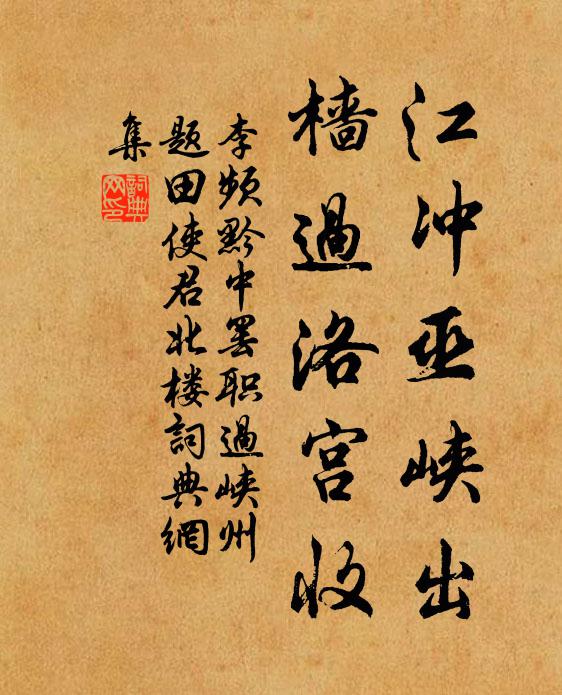 江冲巫峡出
樯過洛宫收
李频黔中罢职過峡州
题田使君北楼詞典網
集
詞典
网印